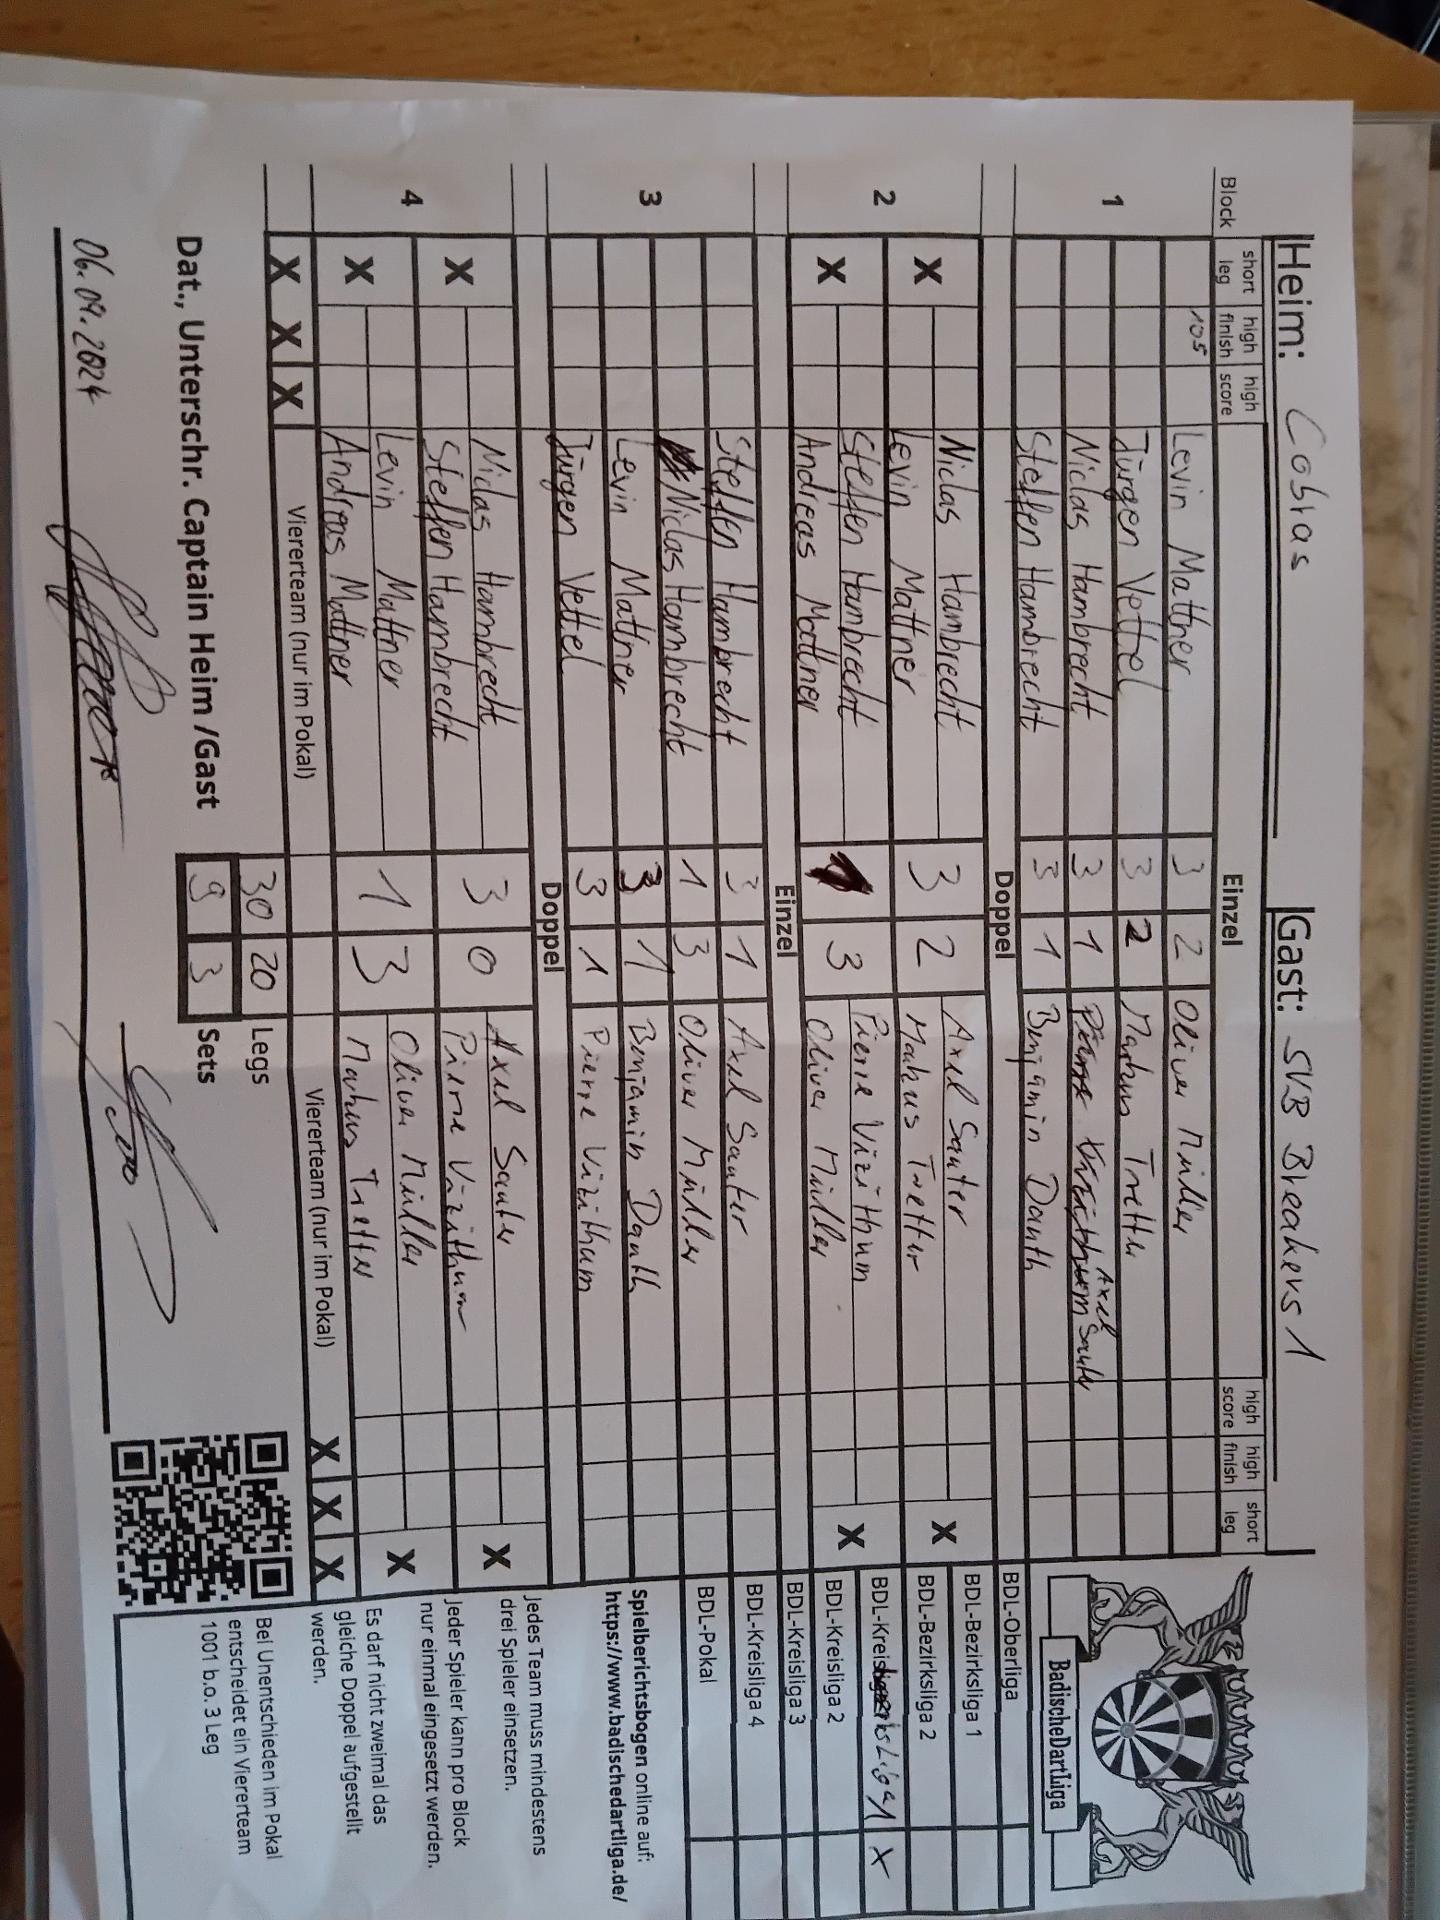 Heim: Cobras
Gast: SVB Breakers 1
Block
short leg
high finish
high score
Einzel
high score
high finish
short leg
1
105 Levin Mattner 3 2 Oliver Müller
Jürgen Vettel 3 2 Markus Tretter
Niclas Hambrecht 3 1 Axel Sauter
Steffen Hambrecht 3 1 Benjamin Dauth
Doppel
2
X Niclas Hambrecht 3 2 Axel Sauter X
Levin Mattner Markus Tretter
X Steffen Hambrecht 3 Pierre Vizithum X
Andreas Mattner Oliver Müller
Einzel
3
Steffen Hambrecht 3 1 Axel Sauter
Niclas Hambrecht 1 3 Oliver Müller
Levin Mattner 3 1 Benjamin Dauth
Jürgen Vettel 3 1 Pierre Vizithum
Doppel
4
X Niclas Hambrecht 3 0 Axel Sauter X
Steffen Hambrecht Pierre Vizithum
X Levin Mattner 1 3 Oliver Müller X
Andreas Mattner Markus Tretter
X X X Viererteam (nur im Pokal) Viererteam (nur im Pokal) X X X
30 20 Legs
Dat., Unterschr. Captain Heim /Gast 9 3 Sets
06.09.2024
BadischeDartLiga
BDL-Oberliga
BDL-Bezirksliga 1
BDL-Bezirksliga 2
BDL-Kreisliga 1 X
BDL-Kreisliga 2
BDL-Kreisliga 3
BDL-Kreisliga 4
BDL-Pokal
Spielberichtsbogen online auf:
https://www.badischedartliga.de/
Jedes Team muss mindestens
drei Spieler einsetzen.
Jeder Spieler kann pro Block
nur einmal eingesetzt werden.
Es darf nicht zweimal das
gleiche Doppel aufgestellt
werden.
Bei Unentschieden im Pokal
entscheidet ein Viererteam
1001 b.o. 3 Leg